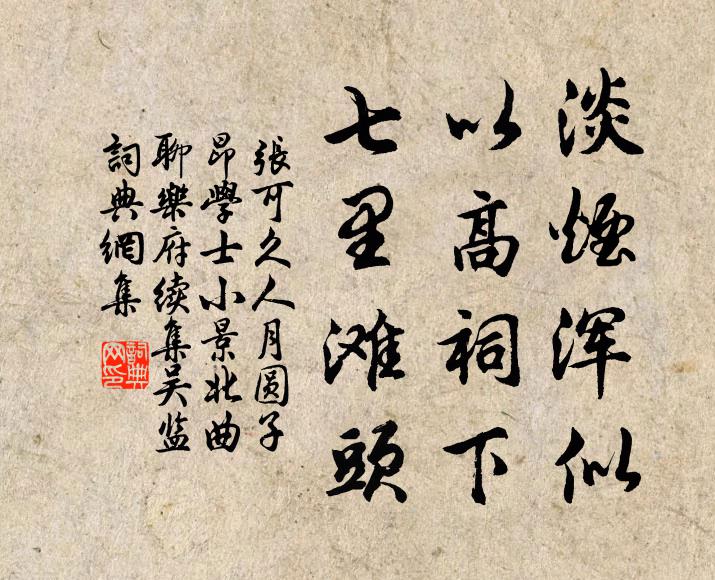 淡煙浑似
以高祠下
七里滩頭
張可久人月圆子
昂學士小景北曲
聊樂府续集吴监
詞典網集
詞典網印